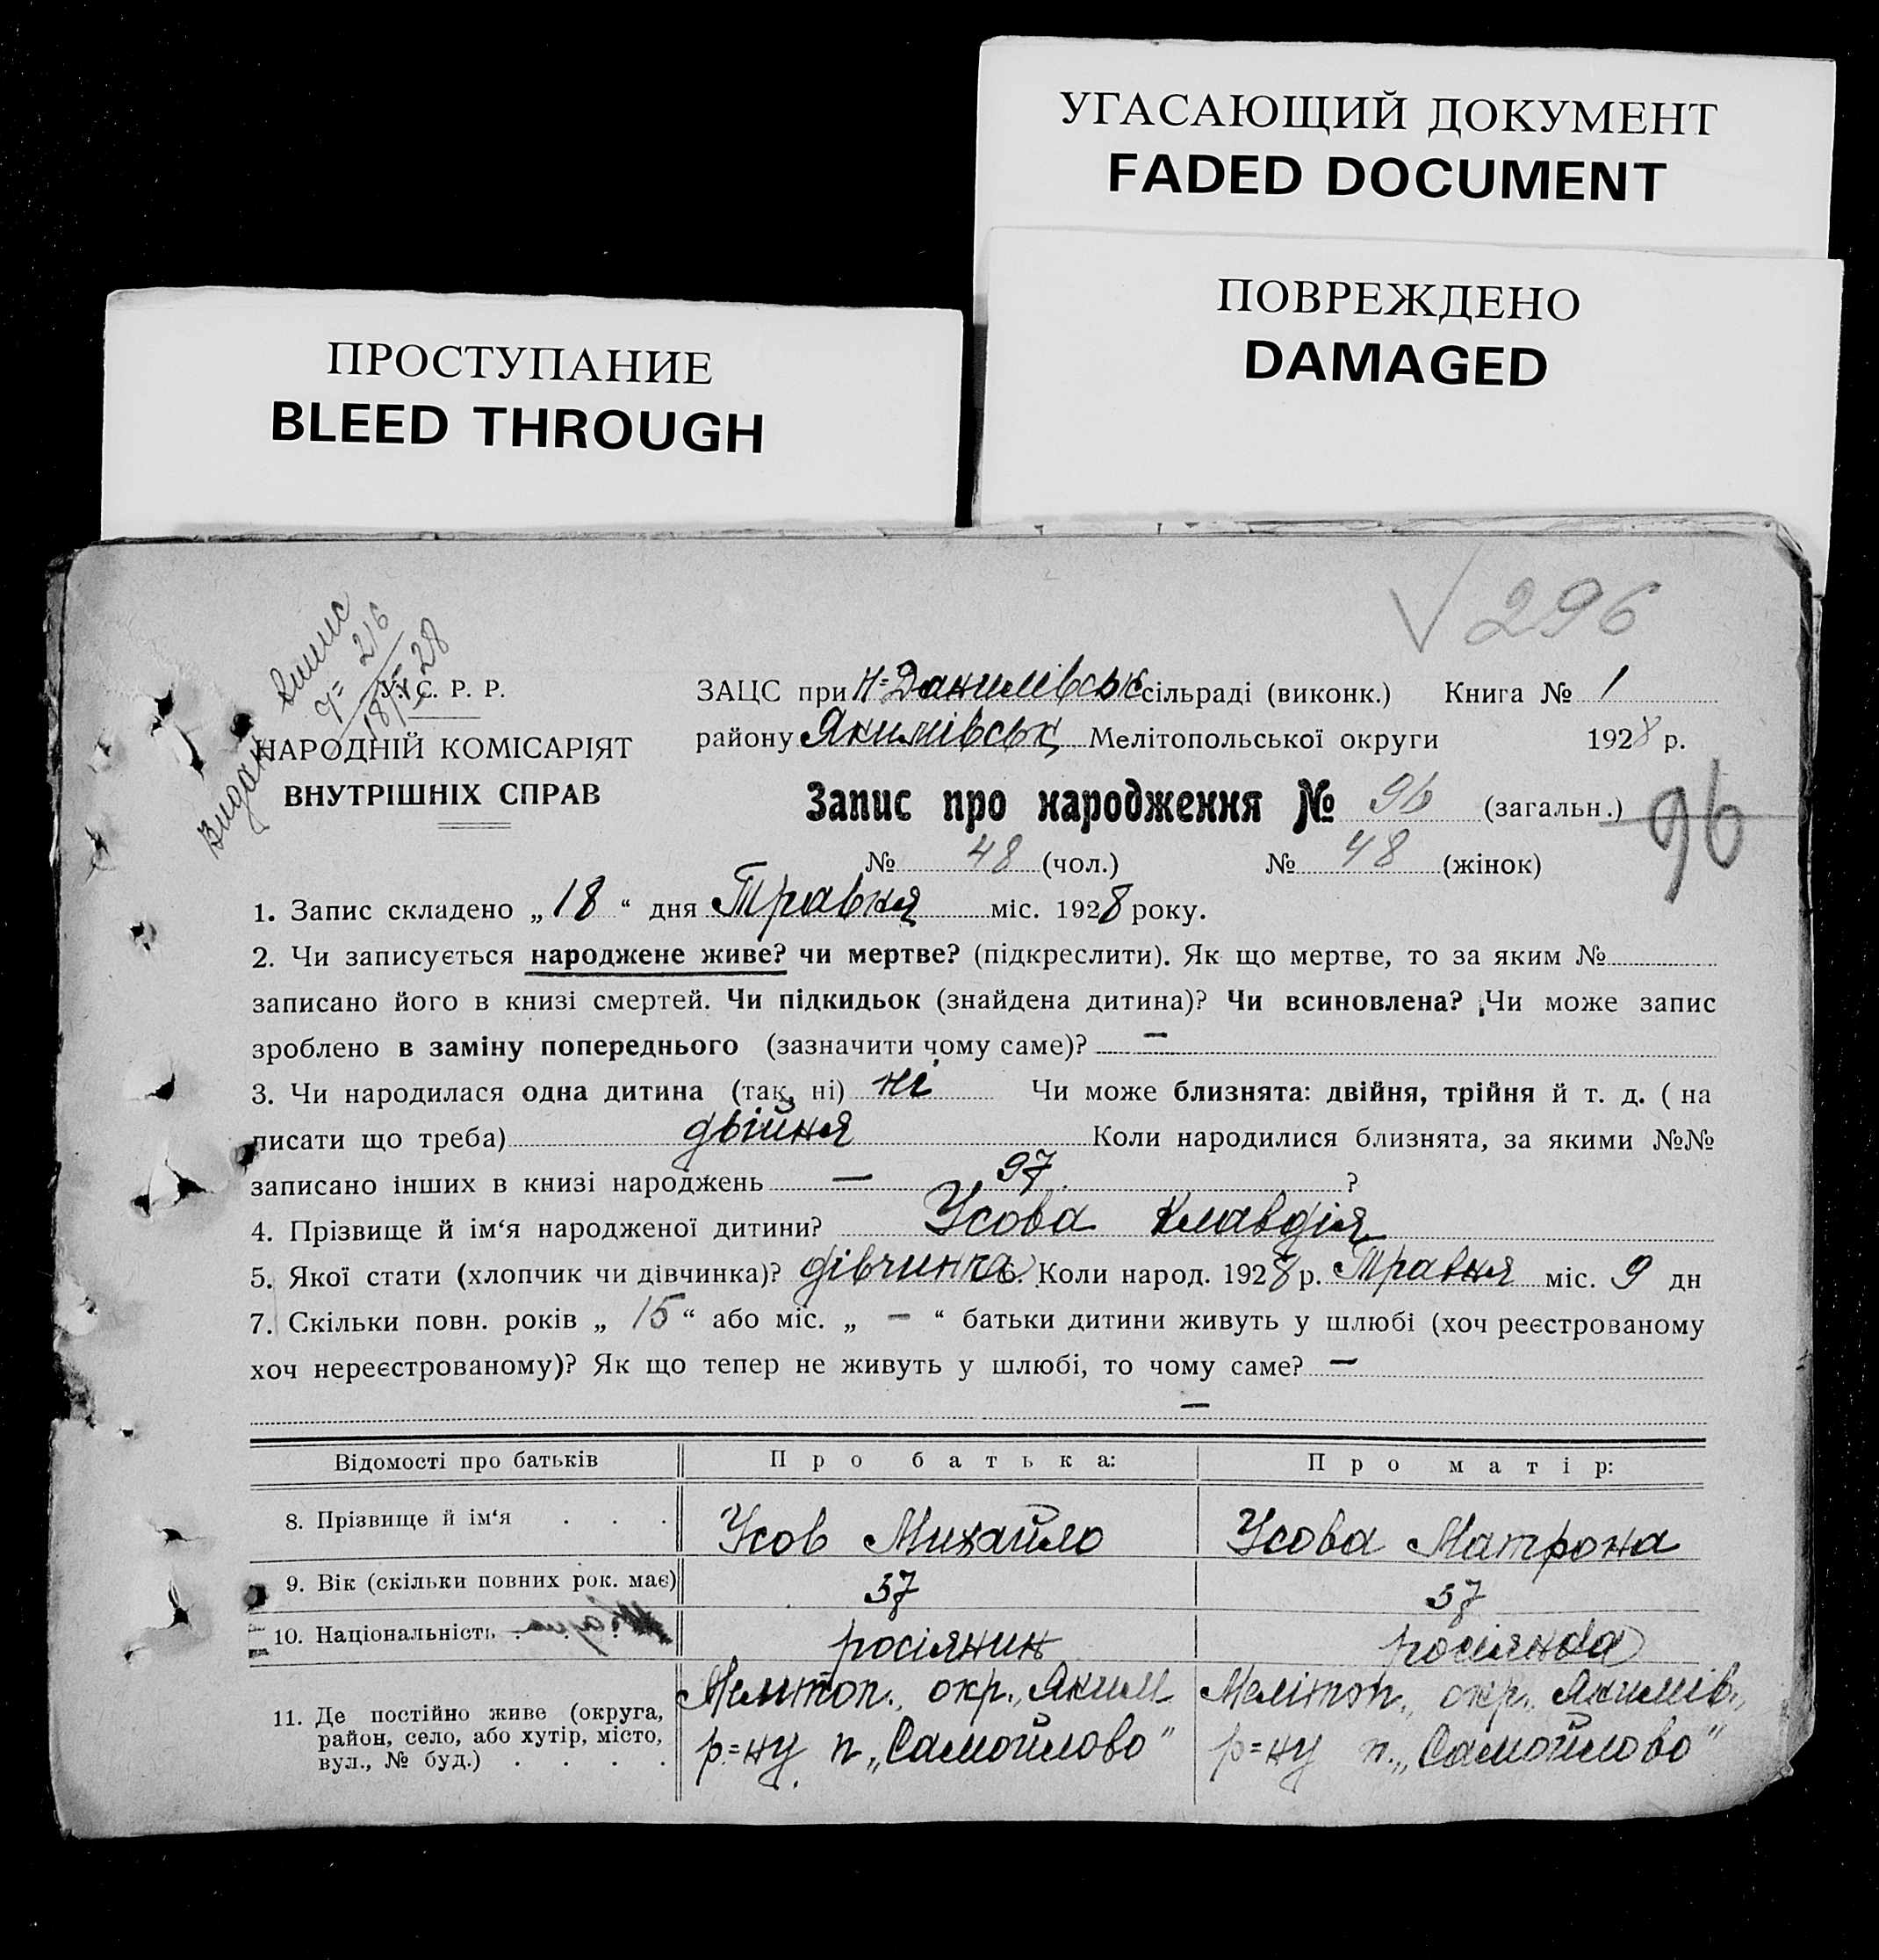 УГАСАЮЩИЙ ДОКУМЕНТ
FADED DOCUMENT
ПОВРЕЖДЕНО
DAMAGED
ПРОСТУПАНИЕ
BLEED THROUGH
√ 296
Видан Випис
ч= 216
18/V-28
У. С. Р. Р.
НАРОДНІЙ КОМІСАРІЯТ
ВНУТРІШНІХ СПРАВ
ЗАЦС при Н=Данилівськ сільраді (виконк.) Книга № 1
району Якимівськ Мелітопольської округи 1928 р.
Запис про народження № 96 (загальн.) 96
№ 48 (чол.) № 48 (жінок)
1. Запис складено „18“ дня Травня міс. 1928 року.
2. Чи записується народжене живе? чи мертве? (підкреслити). Як що мертве, то за яким №
записано його в книзі смертей. Чи підкидьок (знайдена дитина)? Чи всиновлена? Чи може запис
зроблено в заміну попереднього (зазначити чому саме)? —
3. Чи народилася одна дитина (так, ні) ні Чи може близнята: двійня, трійня й т. д. ( на
писати що треба) двійня Коли народилися близнята, за якими №№
записано інших в книзі народжень — 97. ?
4. Прізвище й ім‘я народженої дитини? Усова Клавдія
5. Якої стати (хлопчик чи дівчинка)? дівчинка 6. Коли народ. 1928 р. Травня міс. 9 дн
7. Скільки повн. років „ 15 “ або міс. „ — “ батьки дитини живуть у шлюбі (хоч реєстрованому
хоч нереєстрованому)? Як що тепер не живуть у шлюбі, то чому саме? —
—
Відомості про батьків Про батька: Про матір:
8. Прізвище й ім‘я . . . Усов Михайло Усова Матрона
9. Вік (скільки повних рок. має) 37 37
10. Національність . . . росіянин росіянка
11. Де постійно живе (округа, район, село, або хутір, місто, вул., № буд.) . . . .
Мелитоп. окр., Яким
р=ну п „Самойлово”
Мелітоп., окр., Якимів.,
р=ну п. „Самойлово”